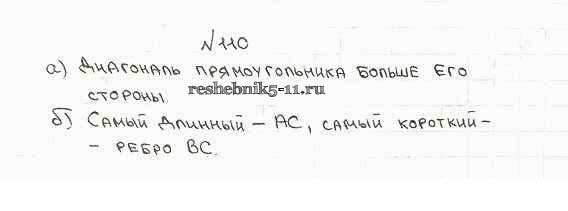 №110
а) Диагональ прямоугольника больше его
стороны.
reshebnik5-11.ru
б) Самый длинный – АС, самый короткий –
– ребро ВС.